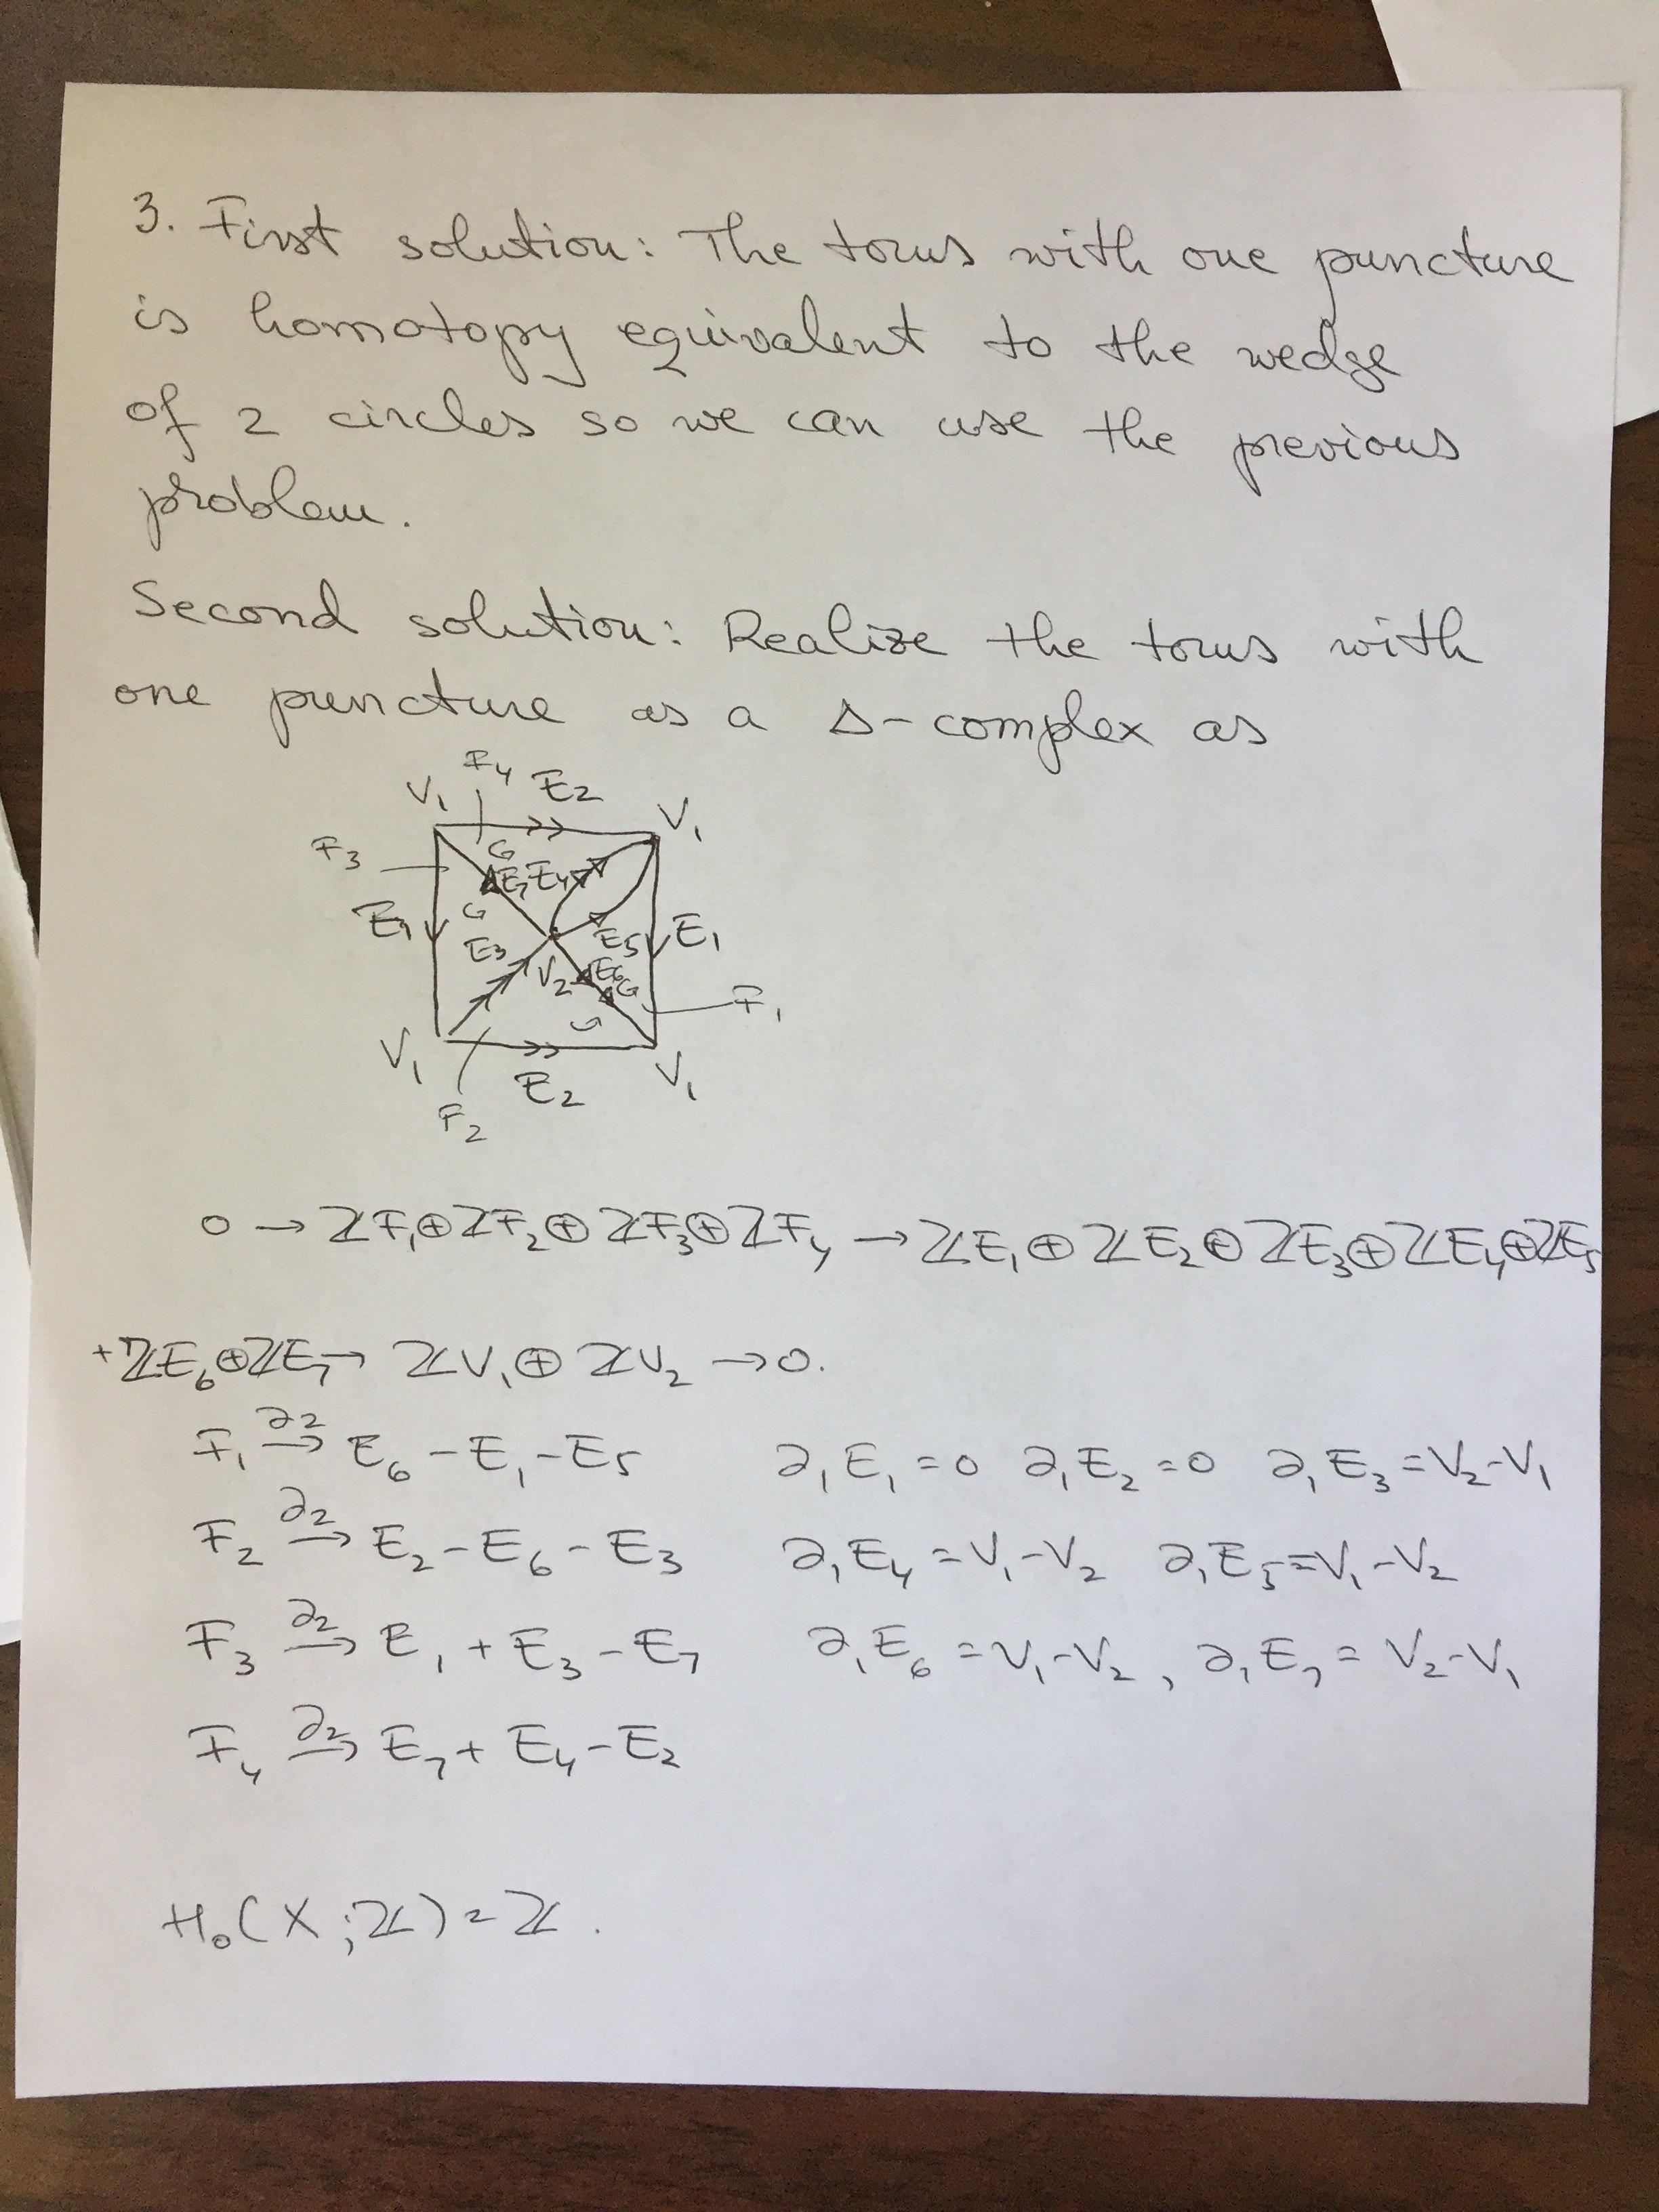 3. First solution: The torus with one puncture
is homotopy equivalent to the wedge
of 2 circles so we can use the previous
problem.
Second solution: Realize the torus with
one puncture as a Δ-complex as
F₄
V₁ E₂ V₁
F₃
E₇ E₄
E₁ E₃ E₅ E₁
V₂ E₆
F₁
V₁ E₂ V₁
F₂
0 → ℤF₁⊕ℤF₂⊕ℤF₃⊕ℤF₄ → ℤE₁⊕ℤE₂⊕ℤE₃⊕ℤE₄⊕ℤE₅
+ℤE₆⊕ℤE₇→ ℤV₁⊕ℤV₂ →0.
F₁ ∂₂→ E₆-E₁-E₅ ∂₁E₁=0 ∂₁E₂=0 ∂₁E₃=V₂-V₁
F₂ ∂₂→ E₂-E₆-E₃ ∂₁E₄=V₁-V₂ ∂₁E₅=V₁-V₂
F₃ ∂₂→ E₁+E₃-E₇ ∂₁E₆=V₁-V₂, ∂₁E₇=V₂-V₁
F₄ ∂₂→ E₇+E₄-E₂
H₀(X;ℤ)=ℤ.